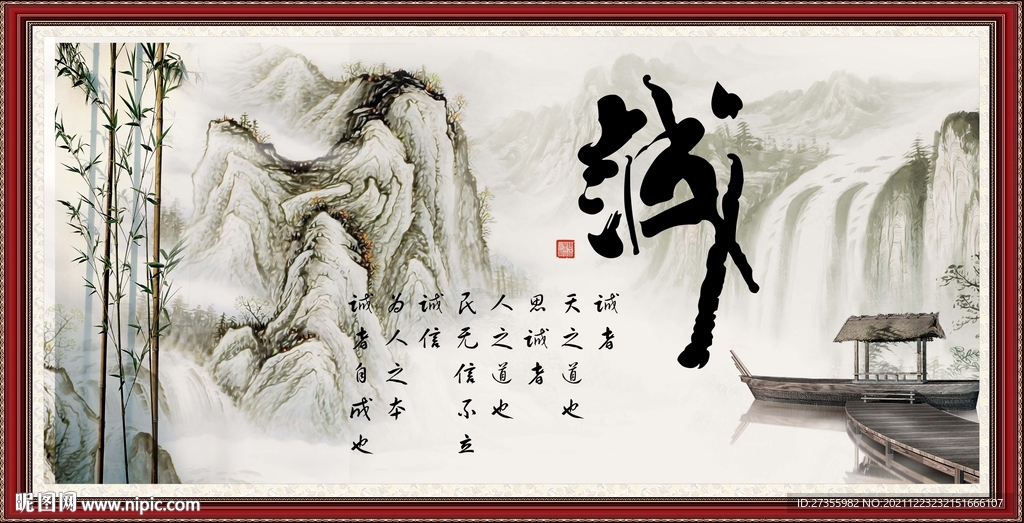 誠
誠者
天之道也
思誠者
人之道也
民无信不立
誠信
为人之本
誠者自成也
昵图网 www.nipic.com
ID:27355982 NO:20211223232151666107